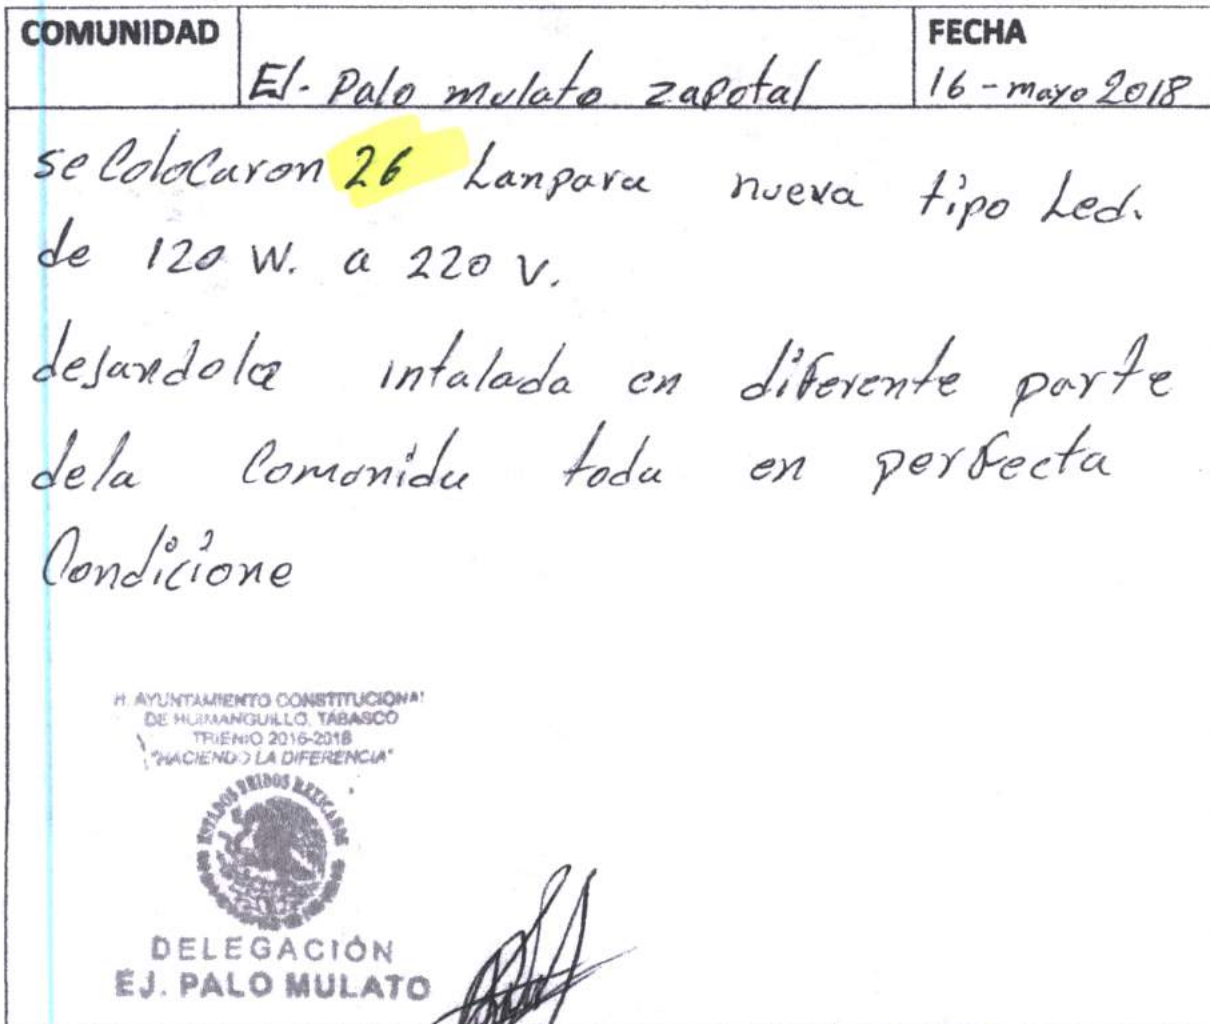 COMUNIDAD
EJ. Palo mulato zapotal
FECHA
16-mayo 2018
se Colocaron 26 Lanpara nueva tipo Led.
de 120 W. a 220 V.
dejandola intalada en diferente parte
dela Comonida toda en perfecta
Condicione
H. AYUNTAMIENTO CONSTITUCIONAL
DE HUIMANGUILLO, TABASCO
TRIENIO 2016-2018
"HACIENDO LA DIFERENCIA"
ESTADOS UNIDOS MEXICANOS
DELEGACIÓN
EJ. PALO MULATO